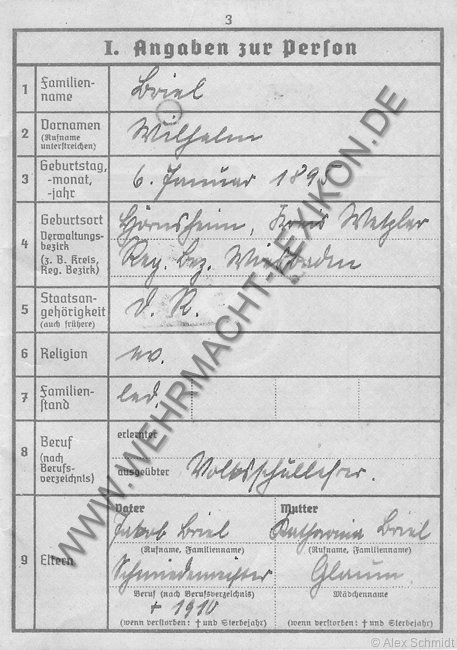 3
I. Angaben zur Person
1 Familien-
name
Briel
2 Vornamen
(Rufname
unterstreichen)
Wilhelm
3 Geburtstag,
-monat,
-jahr
6. Januar 1895
4 Geburtsort
Verwaltungs-
bezirk
(z. B. Kreis,
Reg. Bezirk)
Hörnsheim, Kreis Wetzlar
Reg. Bez. Wiesbaden
5 Staatsan-
gehörigkeit
(auch frühere)
D. R.
6 Religion
ev.
7 Familien-
stand
led.
8 Beruf
(nach
Berufs-
verzeichnis)
erlernter
ausgeübter Volksschullehrer.
9 Eltern
Vater Mutter
Jakob Briel Katharina Briel
(Rufname, Familienname) (Rufname, Familienname)
Schmiedemeister Glaum
Beruf (nach Berufsverzeichnis) Mädchenname
+ 1910
(wenn verstorben: † und Sterbejahr) (wenn verstorben: † und Sterbejahr)
WWW.WEHRMACHT-LEXIKON.DE
© Alex Schmidt